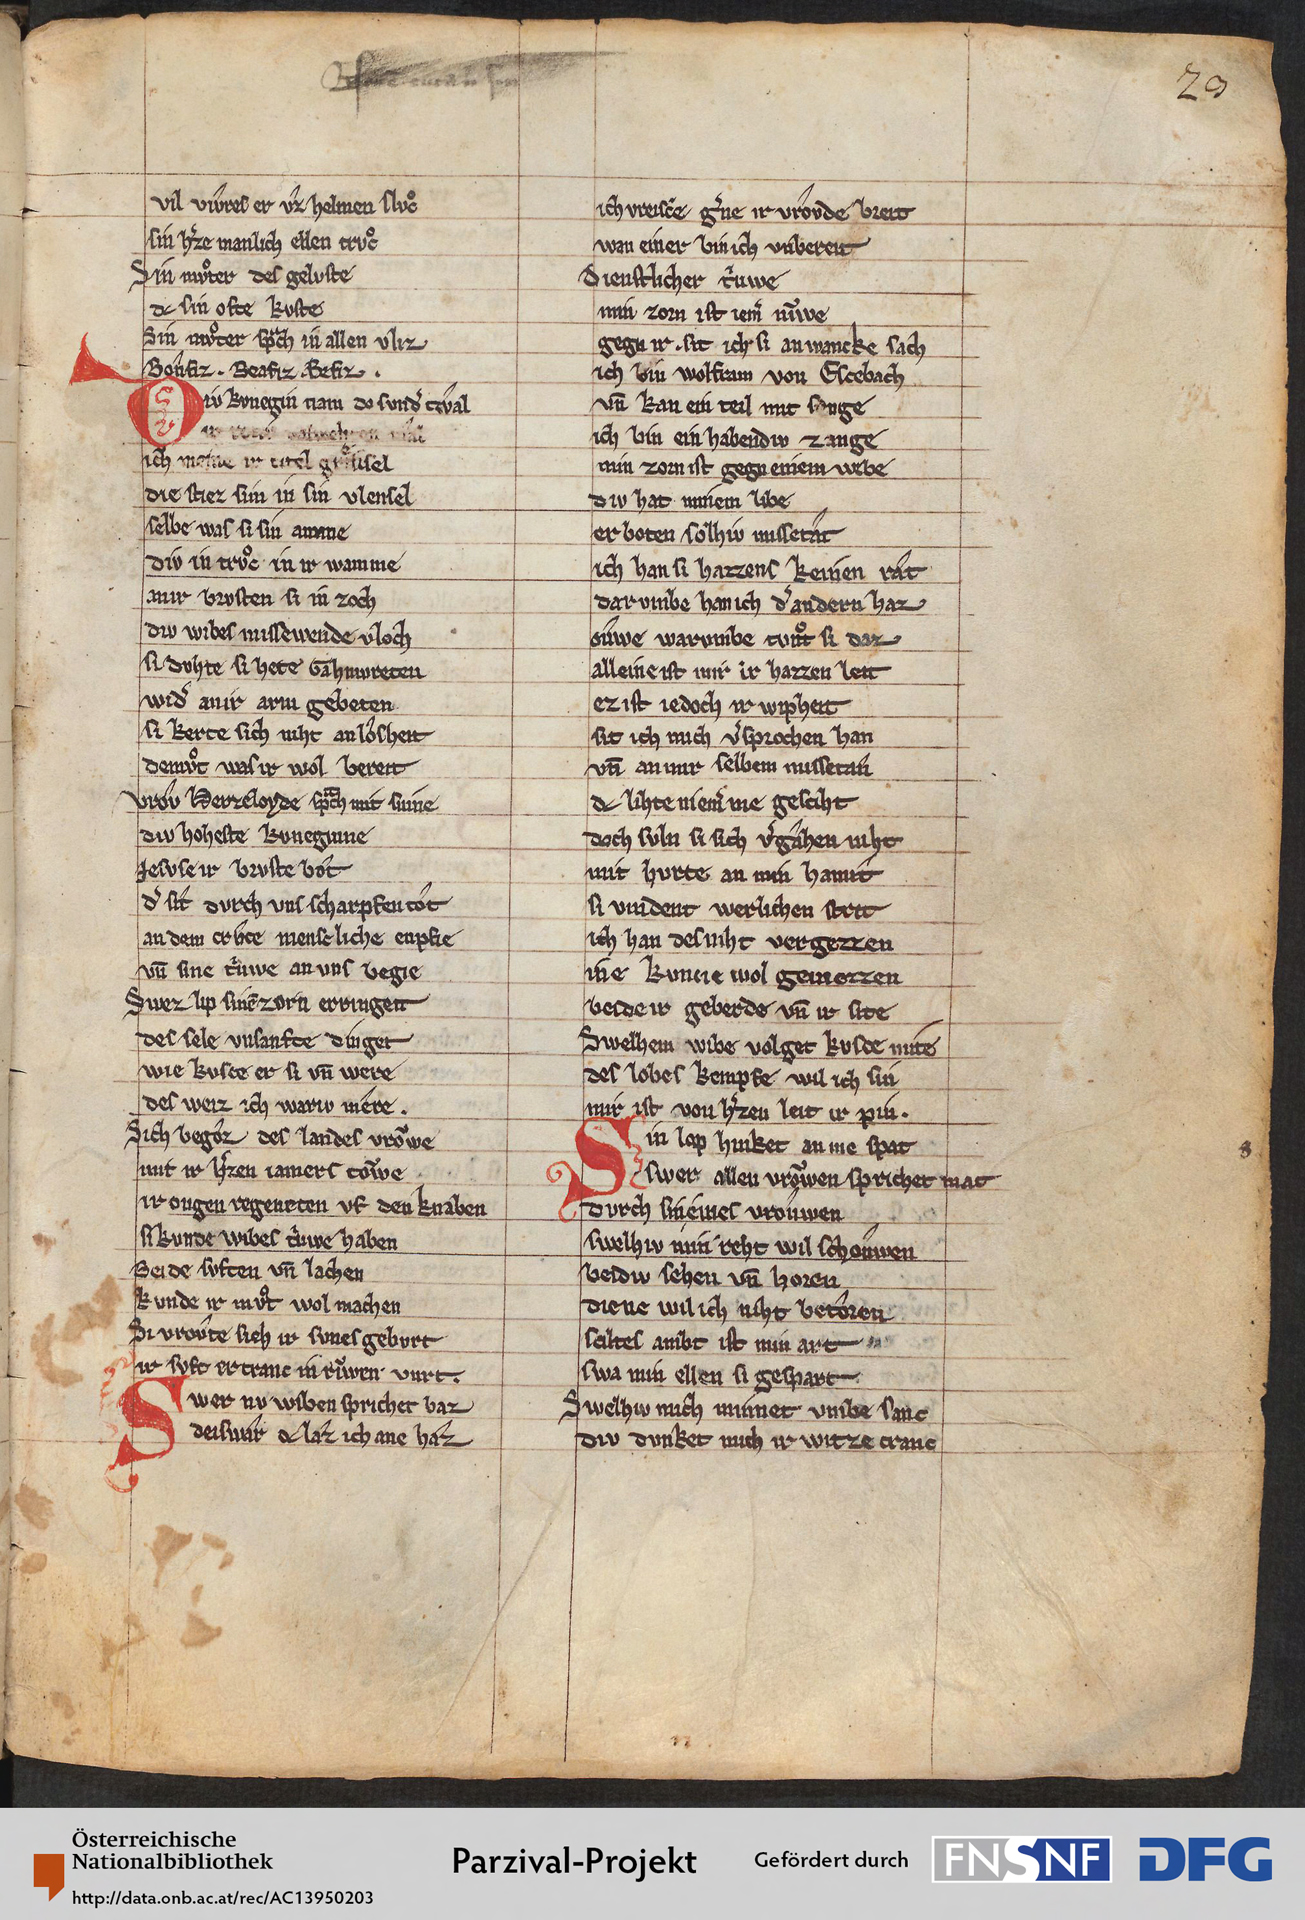 29
vil viv̂res er vz helmen slvͦc
sin hˀze manlich ellen trvͦc
Sin mvͦter des gelvste
dc sin ofte kvste
Sin mvͦter spͣch in allen vliz
Bonfiz. Beafiz
iv kvnegin nam do svndˀ tŵal
ich meine ir
die stiez sim in sin vlensel
selbe was si sin amme
div in trvͦc in ir wamme
an ir brvsten si in zoch
div wibes missewende vloch
si dvhte si hete Gahmvreten
widˀ an ir arm gebeten
si kerte sich niht an losheit
demvͦt was ir wol bereit
vroͮ Herzeloyde spͣch mit sinne
div hoheste kvneginne
Jesvse ir brvste bot
dˀ sit dvrch vns scharpfen tot
an dem crvce mensliche enpfie
vn̄ sine triwe an vns begie
Swez lip sinē zorn erringet
des sele vnsanfte dinget
wie kvsce er si vn̄ were
des weiz ich wariv mere.
Sich begoz des landes vroͮwe
mit ir hˀzen iamers toͮwe
ir ougen regenten vf den knaben
si kvnde wibes triwe haben
Beide svften vn̄ lachen
kvnde ir mvͦt wol machen
Si vroͮte sich ir svnes gebvrt
ir scift ertranc in riwen vurt.
Swer nv wiben sprichet baz
deiswar dc laz ich ane haz
ich vreisce gˀne ir vroͮde breit
wan einer bin ich vnbereit
Dienstlicher triwe
min zorn ist iemˀ niwe
gegn ir. sit ich si an wancke sach
ich bin wolfram von Escebach
vn̄ kan ein teil mit sange
ich bin ein habendiv zange
min zorn ist gegn einem wibe
div hat minem libe
erboten solhiv missetat
ich han si hazzens keinen rat
dar vmbe han ich dˀ andern haz
oͮwe warvmbe tvnt si daz
alleine ist mir ir hazzen leit
ez ist iedoch ir wipheit
sit ich mich vˀsprochen han
vn̄ an mir selbem missetan
dc lihte niemˀ me gesciht
doch svln si sich vˀgahen niht
mit hvrte an min hamit
si vindent werlichen strit
ich han des niht vergezzen
ine kvnne wol gemezzen
beide ir geberde vn̄ ir site
Swelhem wibe volget kvsce mite
des lobes kempfe wil ich sin
mir ist von hˀzen leit ir pin.
Sin lop hinket an me spat
swer allen vroͮwen sprichet mat
dvrch sin eines vroͮwen
swelhiv min reht wil schoͮwen
beidiv sehen vn̄ horen
diene wil ich niht betoren
sciltes ambt ist min art
swa min ellen si gespart
Swelhiv mich minnet vmbe sanc
div dvnket mich ir witze cranc
Österreichische
Nationalbibliothek
http://data.onb.ac.at/rec/AC13950203
Parzival-Projekt
Gefördert durch
FNSNF
DFG